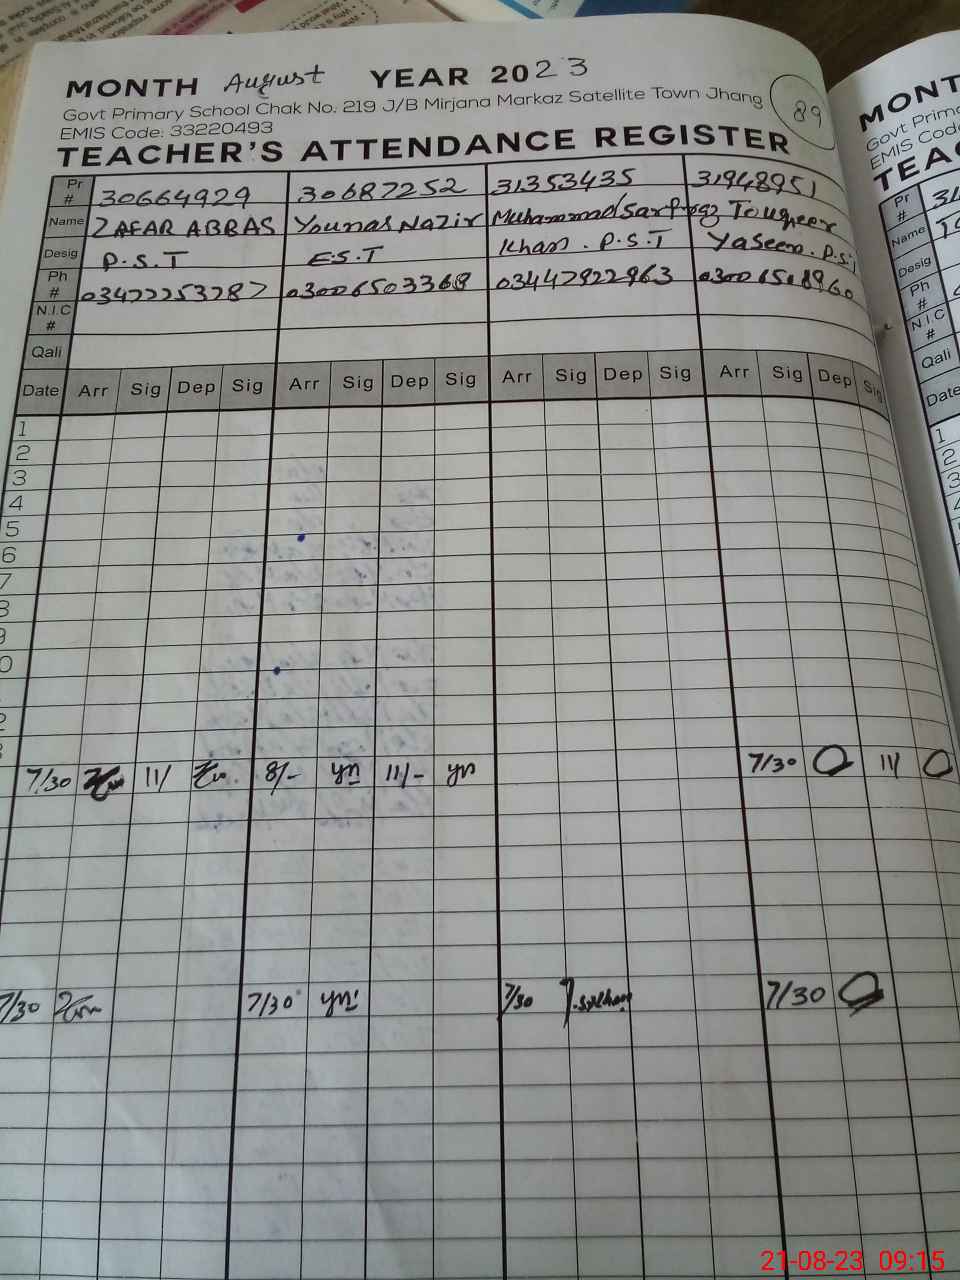 MONTH August YEAR 2023
Govt Primary School Chak No. 219 J/B Mirjana Markaz Satellite Town Jhang
EMIS Code: 33220493
89
TEACHER'S ATTENDANCE REGISTER
Pr # 30664929 30687252 31353435 31948951
Name ZAFAR ABBAS Younas Nazir Muhammad Sarfraz Khan Touqeer Yaseen
Desig P.S.T E.S.T P.S.T P.S.T
Ph # 03472253787 03006503368 03447922963 03006508960
N.I.C #
Qali
Date Arr Sig Dep Sig Arr Sig Dep Sig Arr Sig Dep Sig Arr Sig Dep Sig
1
2
3
4
5
6
7
8
9
7/30 11/ 8/- yn 11/- yn 7/30 11/
7/30 7/30 yn 7/30 7/30
MONT
Govt Prima
EMIS Cod
TEA
Pr #
Name
Desig
Ph #
N.I.C #
Qali
Date
1
2
3
21-08-23 09:15